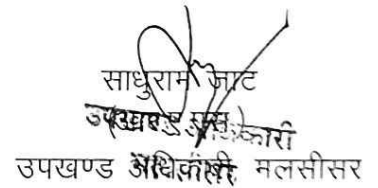 साधुराम जाट
उपखण्ड अधिकारी
उपखण्ड अधिकारी मलसीसर